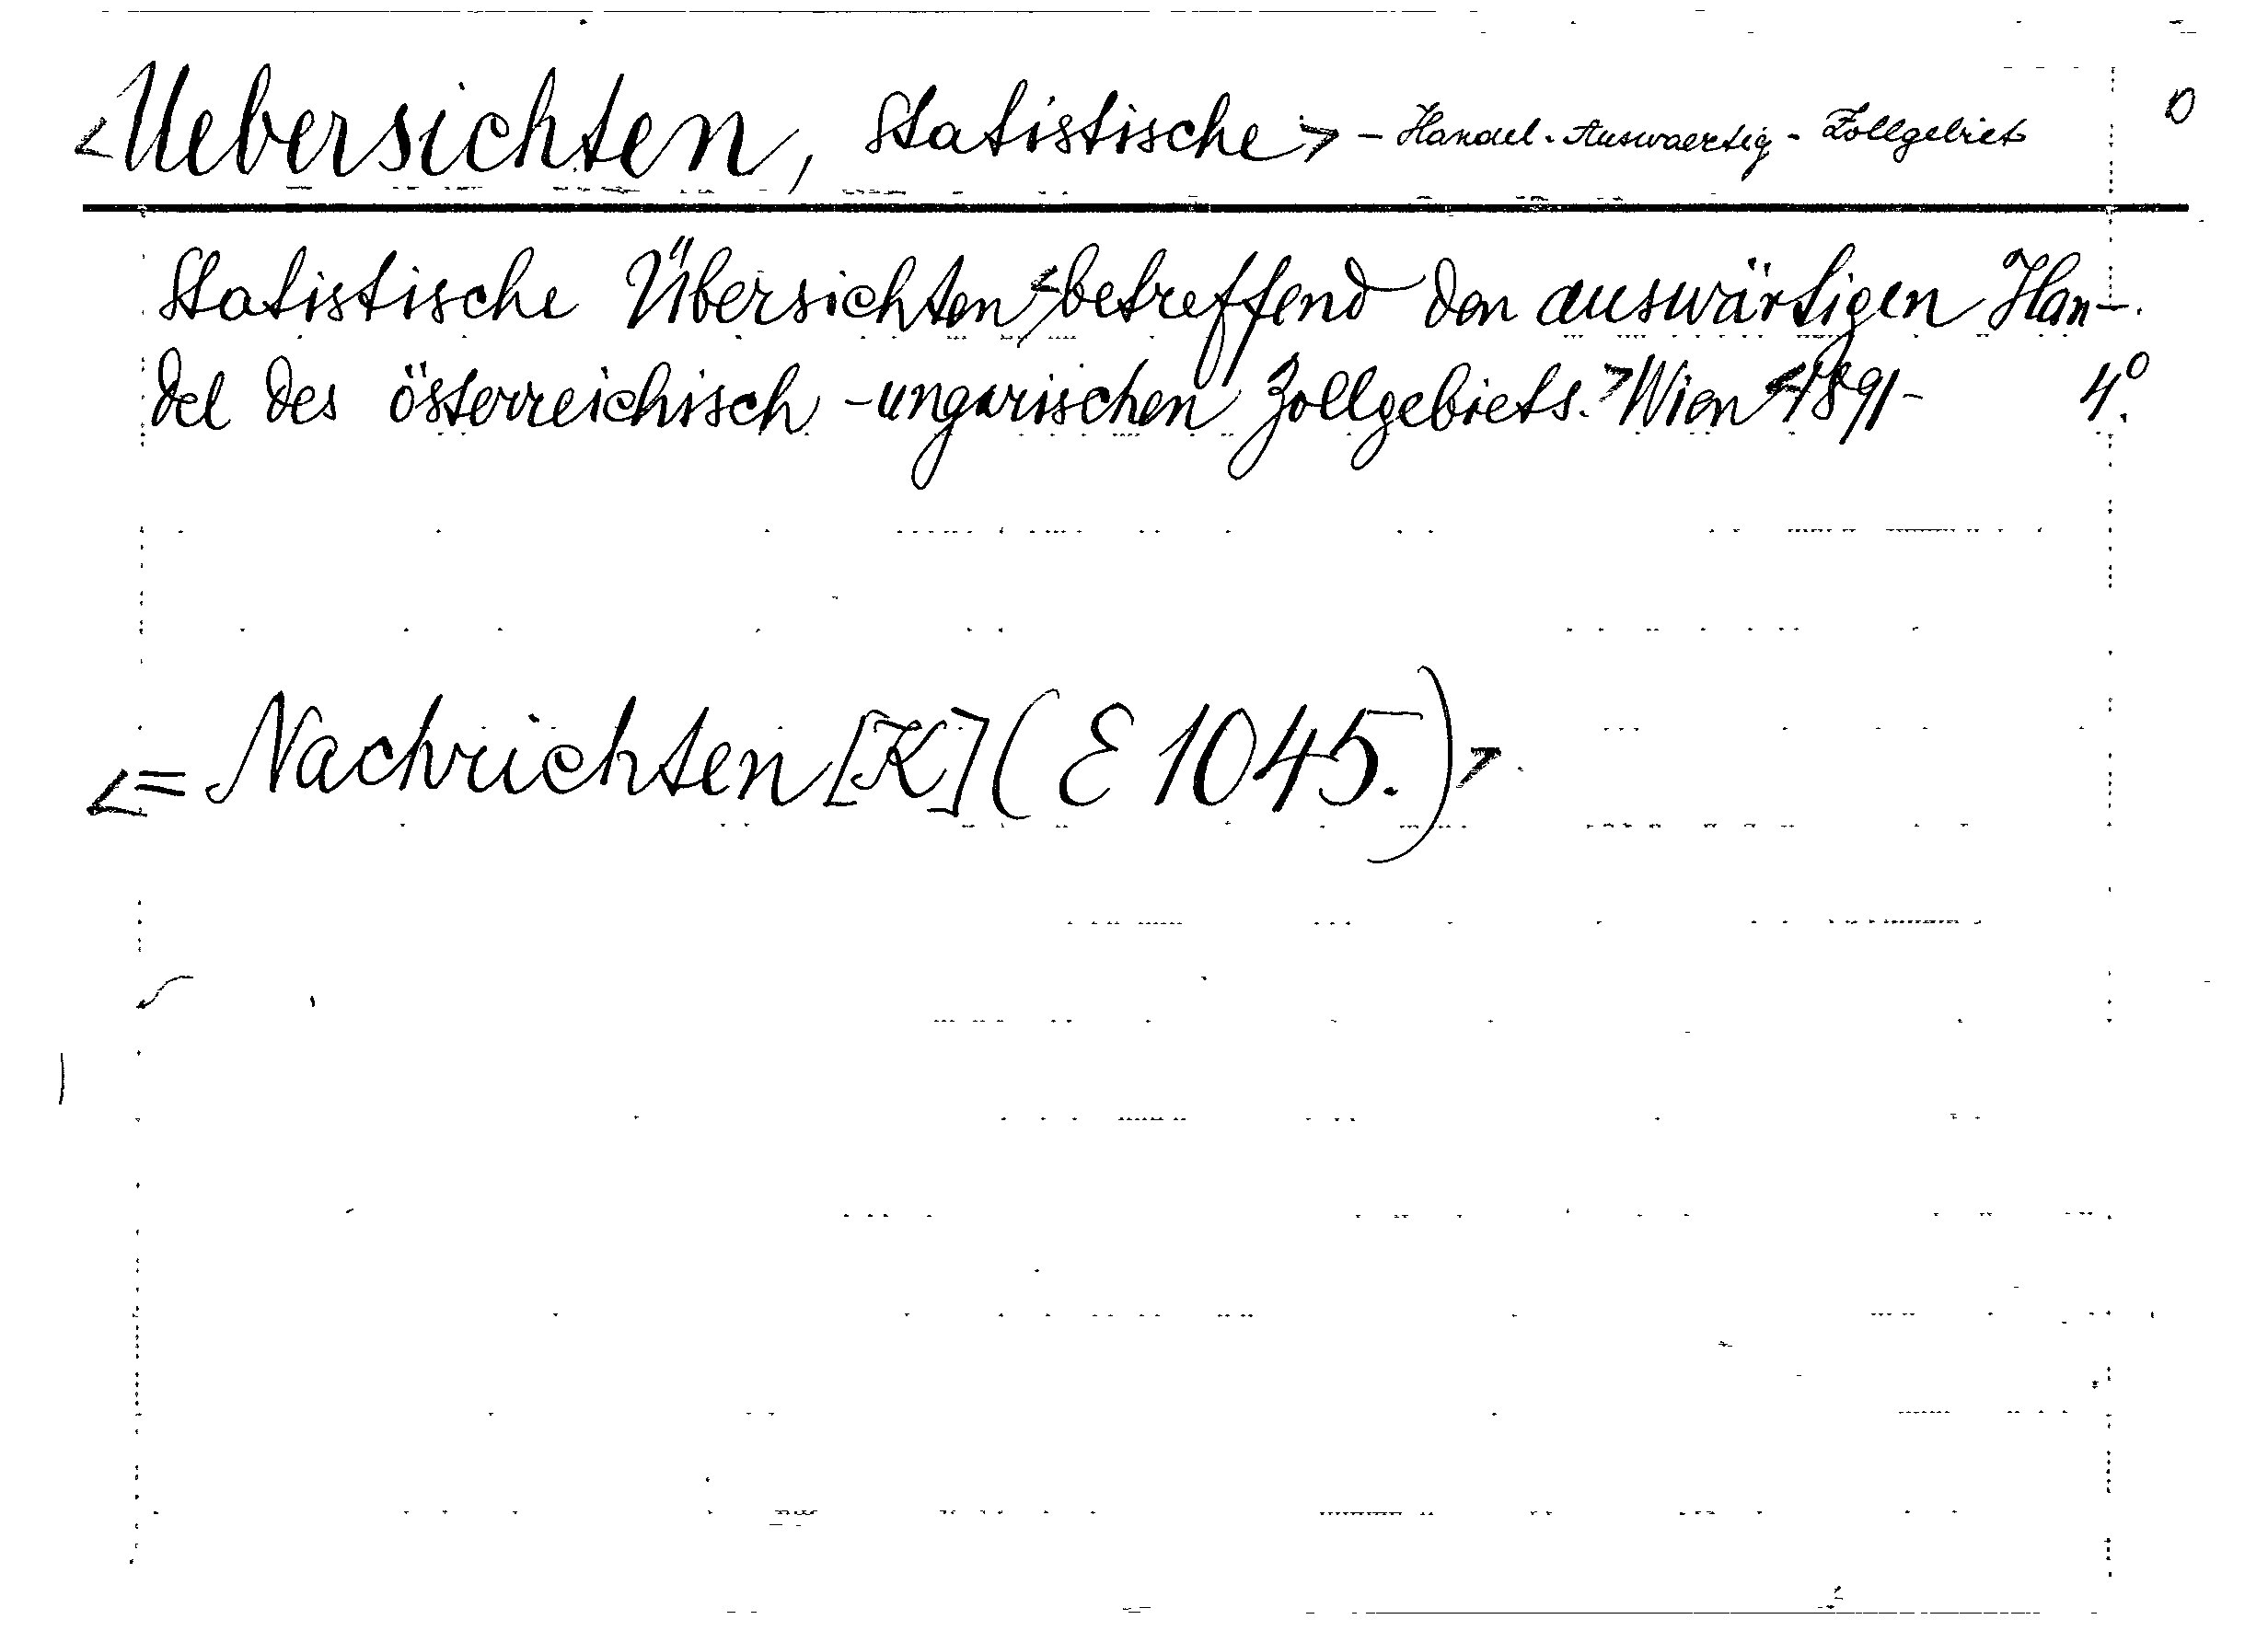 <Uebersichten, Statistische> - Handel - Auswaertig - Zollgebiet
Statistische Übersichten <betreffend den auswärtigen Han-
del des österreichisch-ungarischen Zollgebiets.> Wien <1891-   4°.
<= Nachrichten [K] (E 1045.)>